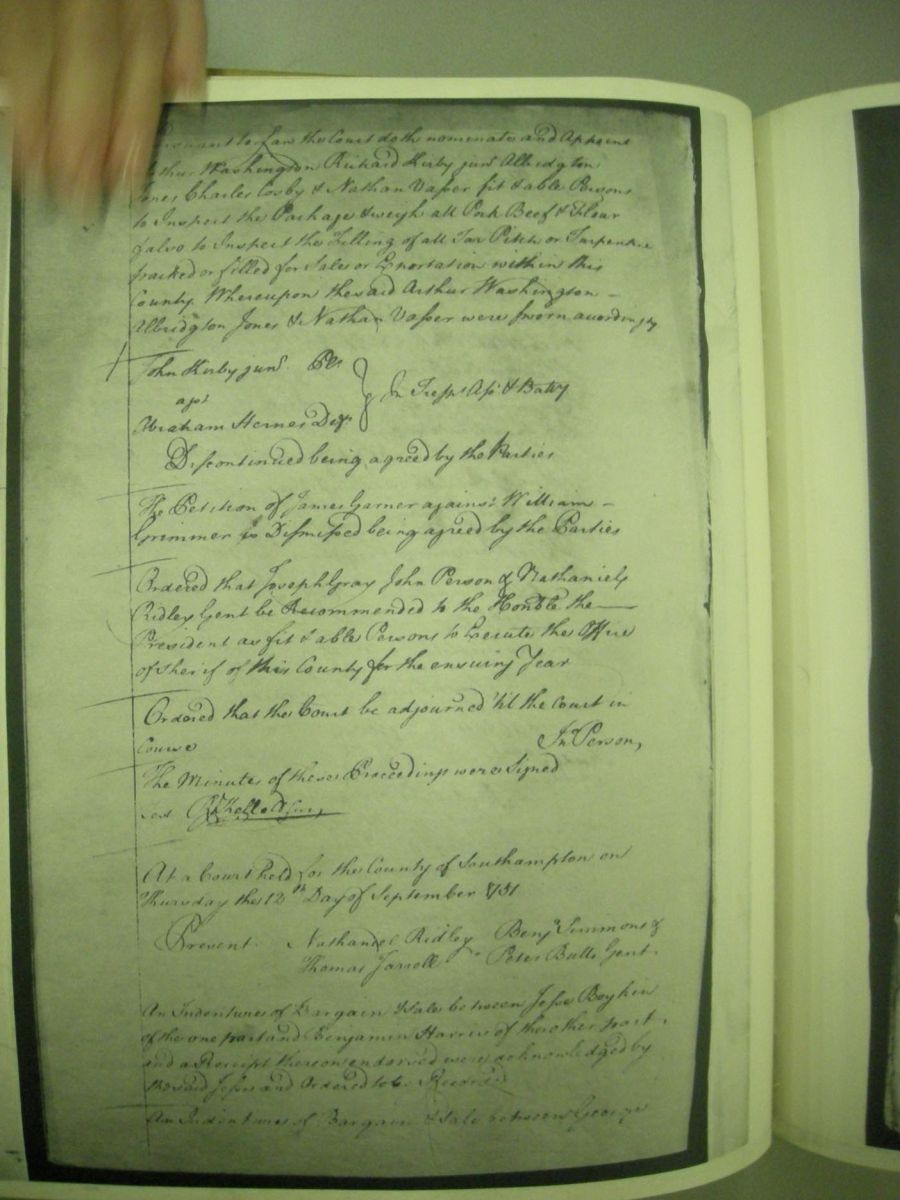 to Law the Court doth nominate and Appoint
Arthur Washington Richard Kirby junr. Albridgton
Jones Charles Cosby & Nathan Vasser fit & able Persons
to Inspect the Package & weigh all Pork Beef & Flour
& also to Inspect the Filling of all Tar Pitch or Turpentine
packed or filled for Sale or Exportation within this
County Whereupon the said Arthur Washington -
Albridgton Jones & Nathan Vasser were sworn accordingly
John Kirby junr. Plt.
agst In Tresps. Asst. & Batty
Abraham Dft.
Discontinued being agreed by the Parties
The Petition of James Garner against William -
Grimmer is Dismissed being agreed by the Parties
Ordered that Joseph Gray John Person & Nathaniel
Ridley Gent be Recommended to the Honble the
President as fit & able Persons to Execute the Office
of Sherif of this County for the ensuing Year
Ordered that the Court be adjourned 'til the Court in
Course
Jn. Person,
The Minutes of these Proceedings were Signed
Test
At a Court held for the County of Southampton on
Thursday the 12th Day of September 1751
Present. Nathaniel Ridley Benja. Simmons &
Thomas Jarrell Peter Butts Gent.
An Indenture of Bargain & Sale between Jesse Boykin
of the one part and Benjamin Harris of the other part -
and a Receipt thereon endorsed were acknowledged by
the said Jesse and Ordered to be Recorded
An Indenture of Bargain & Sale between George